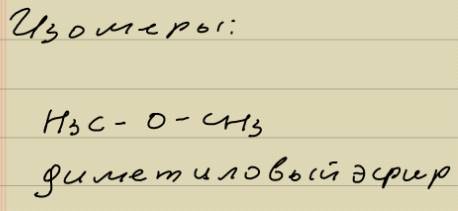 Изомеры:
H3C - O - CH3
диметиловый эфир